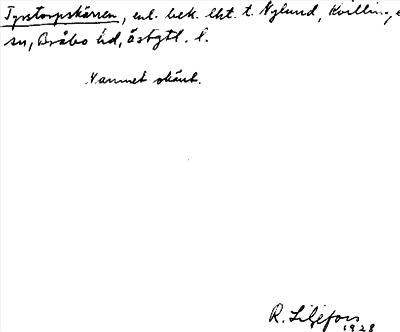 Tyrstorpskärren, enl. bek. lht. t. Nylund, Kvillinge
sn, Bråbo hd, Östgtl. l.
Namnet okänt.
R. Liljefors
1928